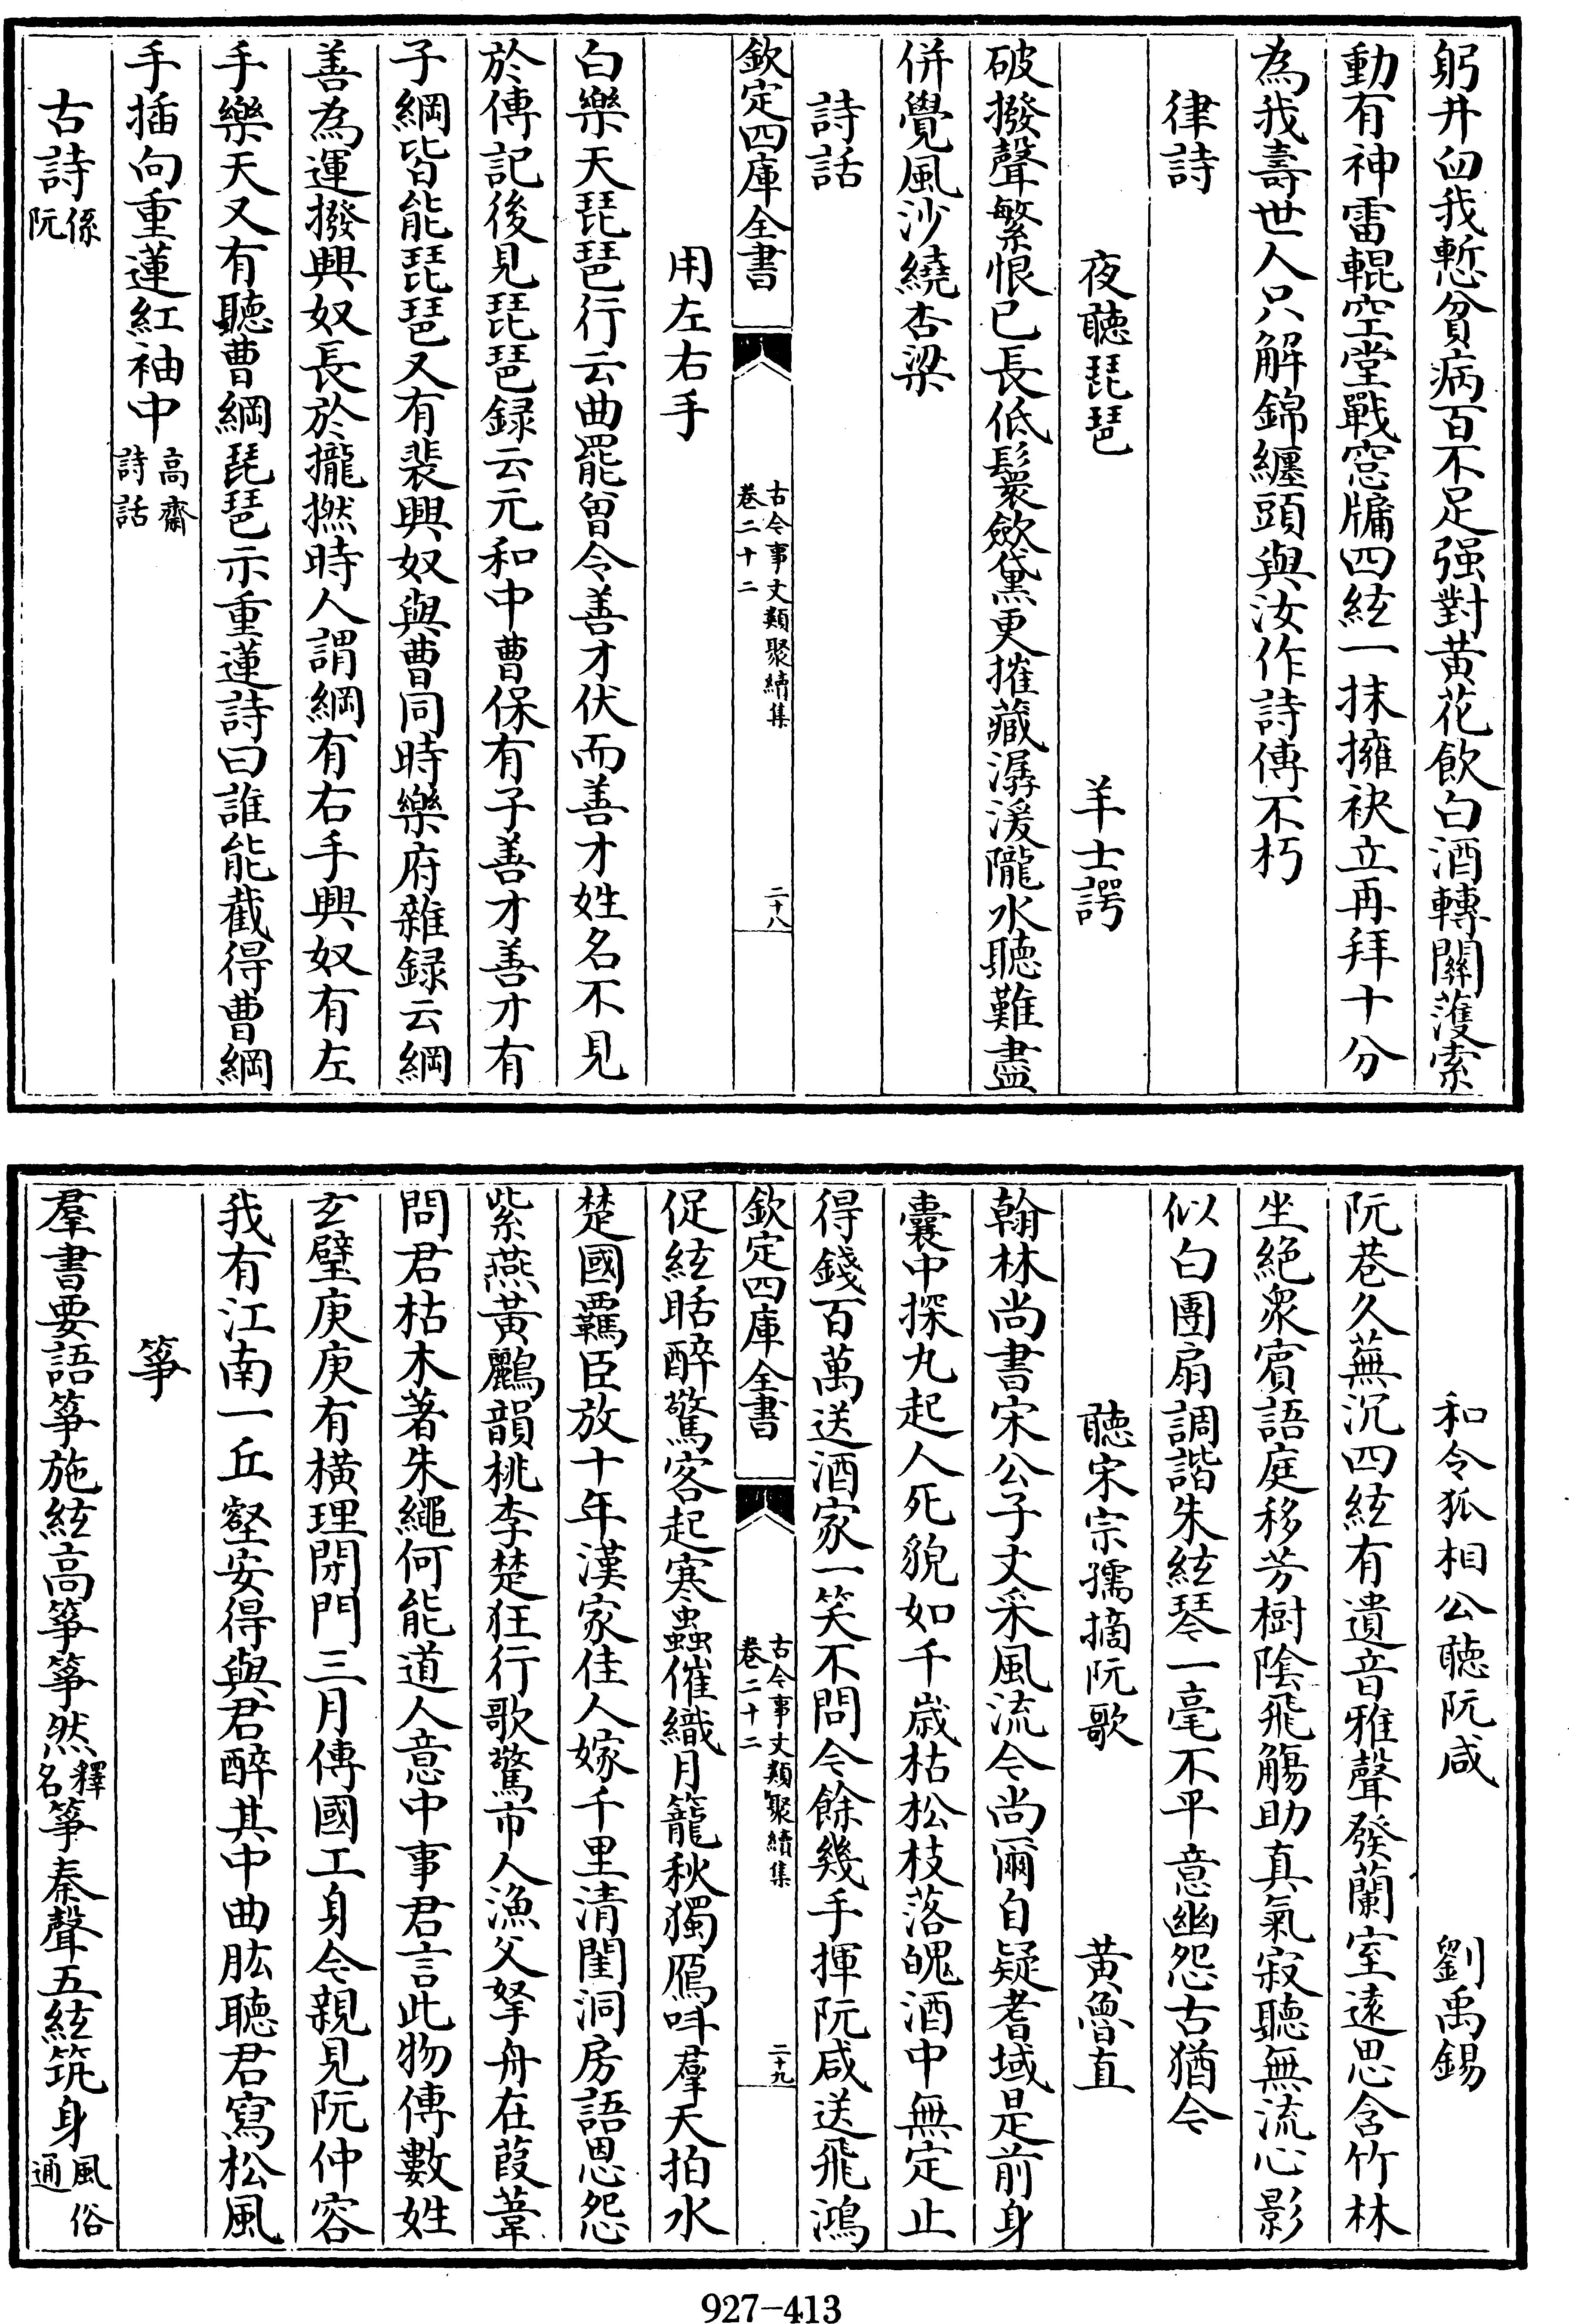 躬井臼我慙貧病百不足强對黄花飲白酒轉關濩索
動有神雷輥空堂戰窓牖四絃一抹擁袂立再拜十分
為我壽世人只解錦纏頭與汝作詩傳不朽
律詩
夜聽琵琶　羊士諤
破撥聲繁恨已長低鬟歛黛更摧藏潺湲隴水聽難盡
併覺風沙繞杏梁
詩話
欽定四庫全書　古今事文類聚續集　卷二十二　二十八
用左右手
白樂天琵琶行云曲罷曾令善才伏而善才姓名不見
於傳記後見琵琶録云元和中曹保有子善才善才有
子綱皆能琵琶又有裴興奴與曹同時樂府雜録云綱
善為運撥興奴長於攏撚時人謂綱有右手興奴有左
手樂天又有聽曹綱琵琶示重蓮詩曰誰能截得曹綱
手插向重蓮紅袖中高齋詩話
古詩係阮
和令狐相公聽阮咸　劉禹錫
阮巷久蕪沉四絃有遺音雅聲發蘭室遠思含竹林
坐絶衆賓語庭移芳樹隂飛觴助真氣寂聽無流心影
似白團扇調諧朱絃琴一毫不平意幽怨古猶今
聽宋宗孺摘阮歌　黄魯直
翰林尚書宋公子文采風流今尚爾自疑耆域是前身
囊中探丸起人死貌如千歲枯松枝落魄酒中無定止
得錢百萬送酒家一笑不問今餘幾手揮阮咸送飛鴻
欽定四庫全書　古今事文類聚續集　卷二十二　二十九
促絃聒醉驚客起寒蟲催織月籠秋獨鴈呌羣天拍水
楚國羈臣放十年漢家佳人嫁千里清閨洞房語恩怨
紫燕黃鸝韻桃李楚狂行歌驚市人漁父拏舟在葭葦
問君枯木著朱繩何能道人意中事君言此物傳數姓
玄璧庚庚有橫理閉門三月傳國工身今親見阮仲容
我有江南一丘壑安得與君醉其中曲肱聽君寫松風
箏
羣書要語箏施絃高箏箏然釋名箏秦聲五絃筑身風俗通
927-413